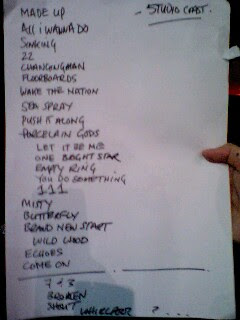 MADE UP
- STUDIO COAST.
All i WANNA DO
SOAKING
22
CHANGINGMAN
FLOORBOARDS
WAKE THE NATION
SEA SPRAY
PUSH IT ALONG
PORCELAIN GODS
LET IT BE ME
ONE BRIGHT STAR
EMPTY RING
YOU DO SOMETHING
1 1 1
MISTY
BUTTERFLY
BRAND NEW START
WILD WOOD
ECHOES
COME ON
7 + 3
BROKEN
SHOUT
WHIRLPOOL ? ...